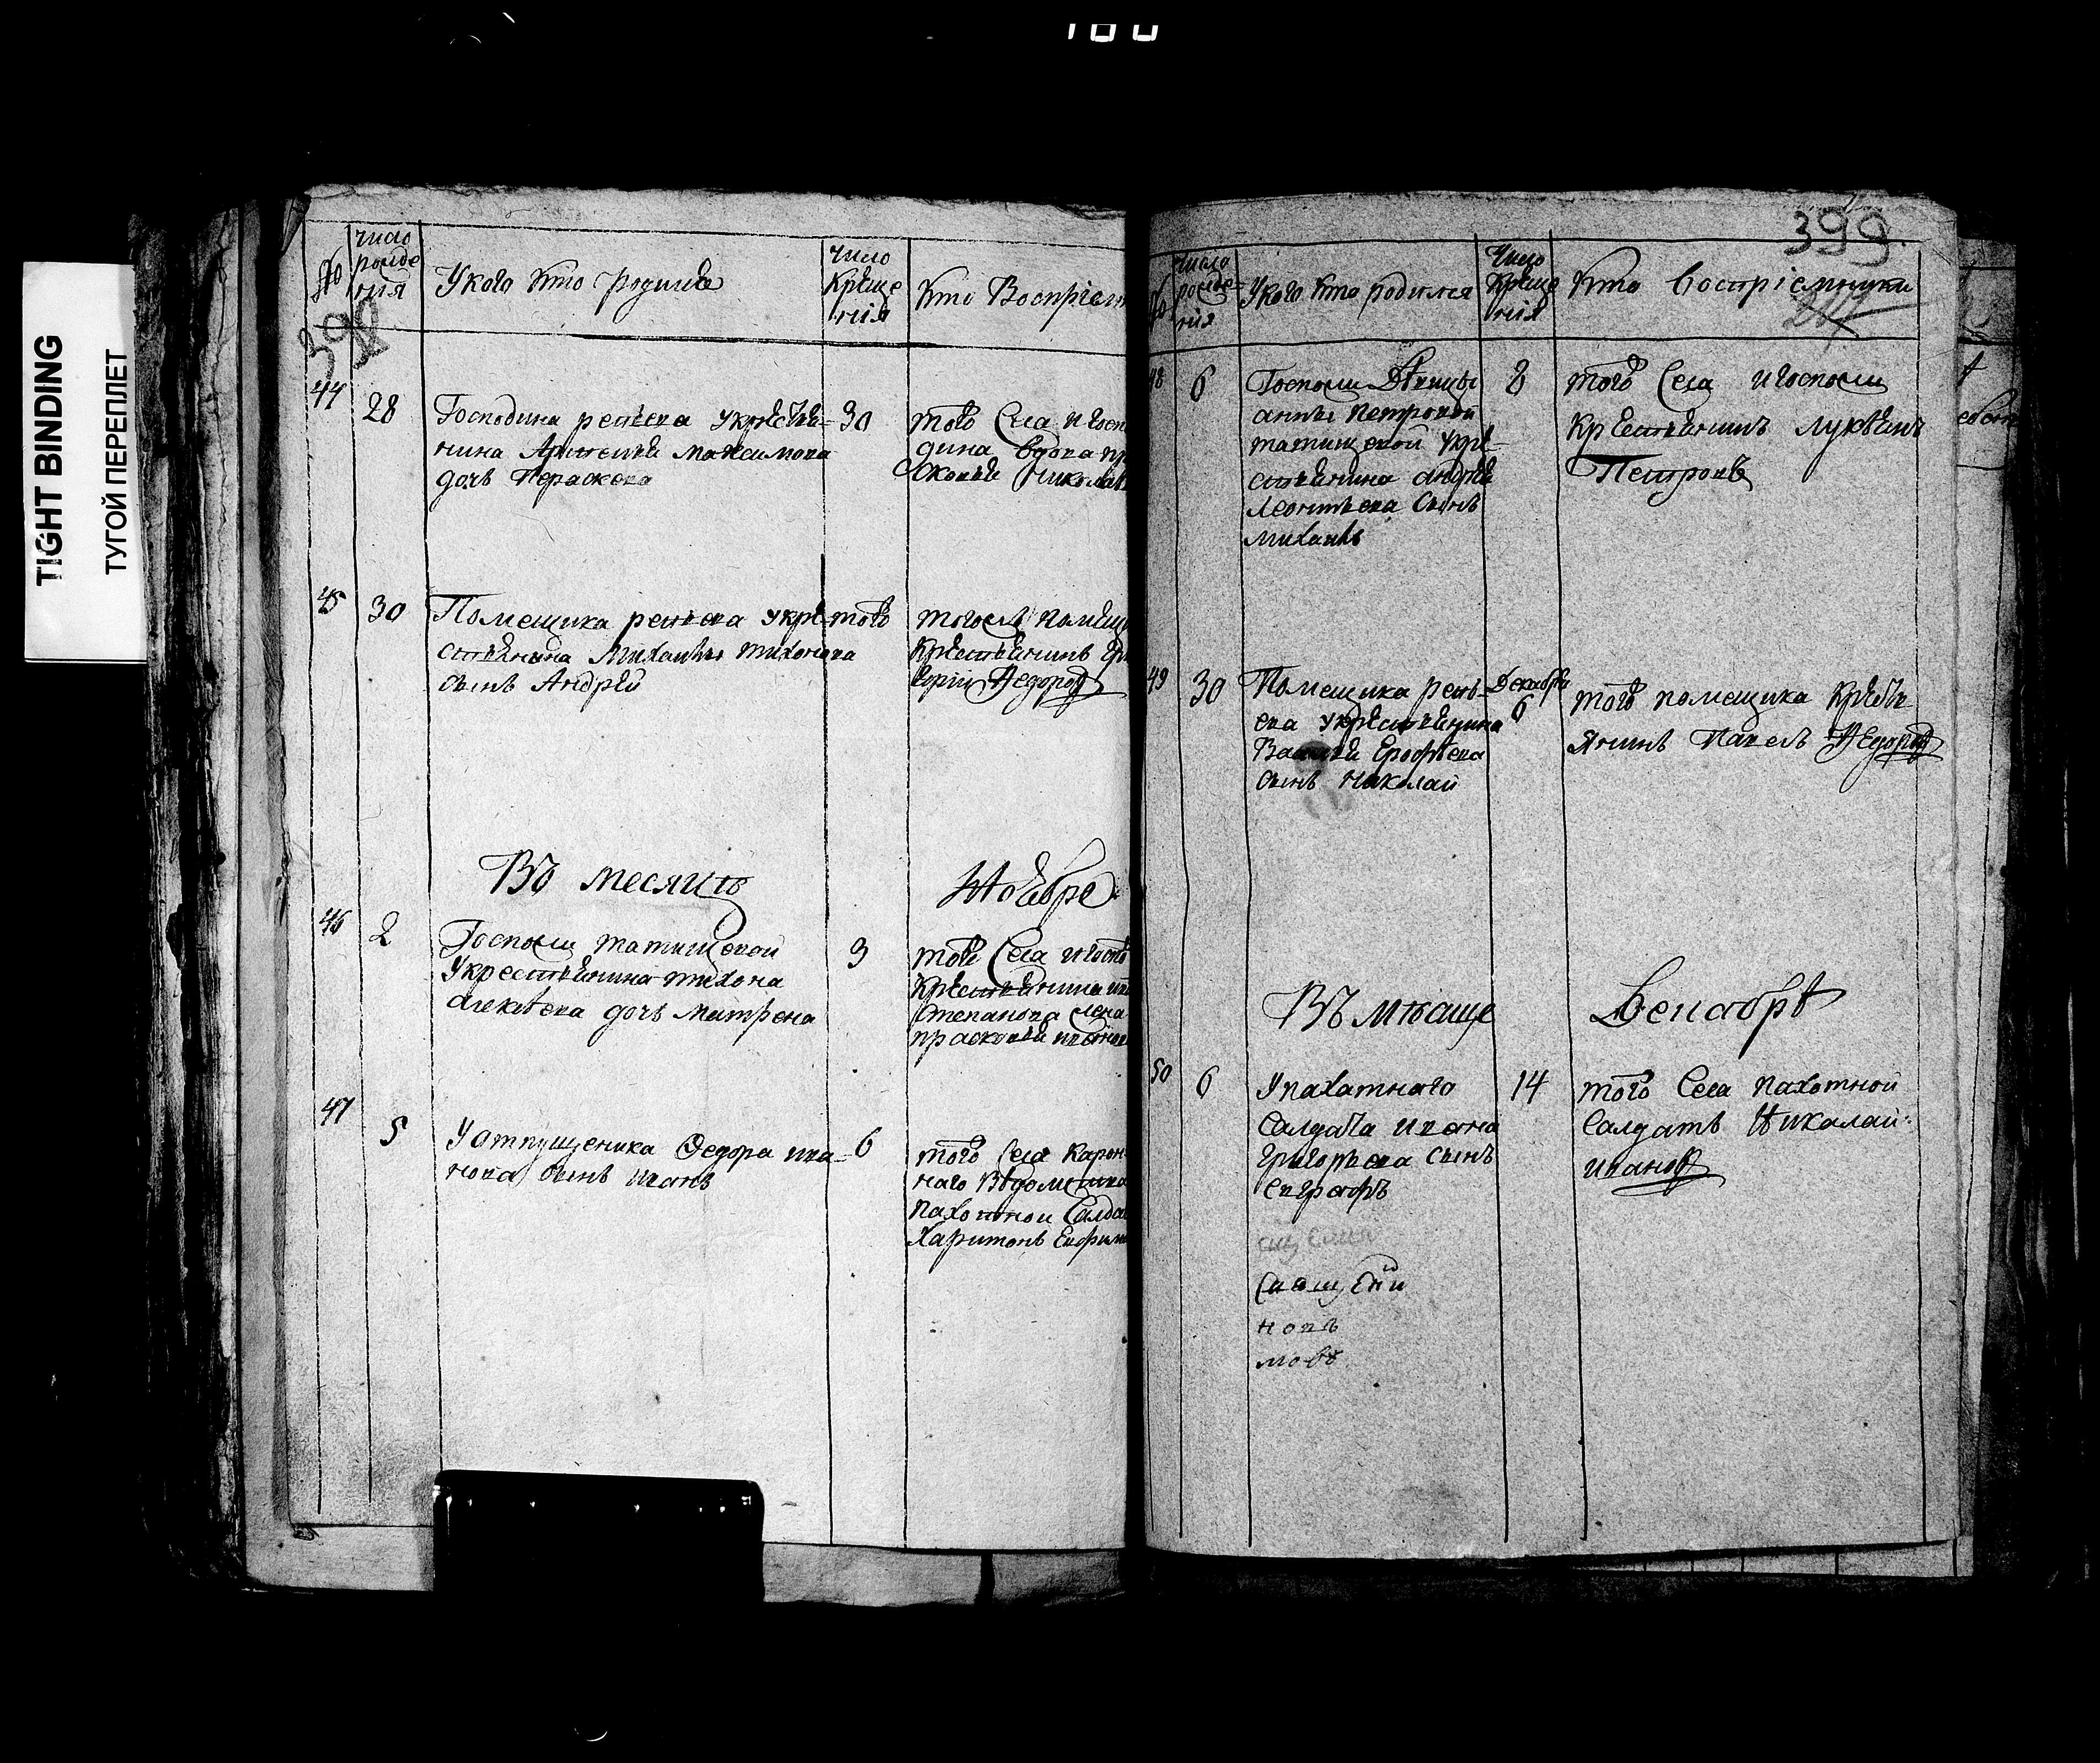 TIGHT BINDING
ТУГОЙ ПЕРЕПЛЕТ
№
число
рожде
нія
Укого кто родился
число
Креще
нія
Кто Воспріем
398
44
28
Господина ренева укрестья=
30
нина Артемья Максимова
дочь Параскева
того Села и госпо
дина вдова пр
сковья Николаев
45
30
Помещика ренева укре=
того
стьянина Михаилы тихонова
сынъ Андрей
тогосъ помещи
крестьянинъ Гри
горій Федоров
Въ месяцъ
Ноября
46
2
Госпожи татищевой
3
Укрестьянина тихона
алексеева дочь Матрена
того Села и госпо
крестьянина ива
Степанова жена
прасковья иванов
47
5
У отпущеника Федора ива=
6
нова сынъ иванъ
того Села Карон
наго Вѣдомства
пахотной Салда
Харитонъ Ефим
399
№
число
рожде=
нія
Укого кто родился
Число
Креще
нія
Кто воспріемники
48
6
Госпожи Дѣвицы
8
анны петровой
татищевой укре=
стьянина андрея
Леонтьева сынъ
михаилъ
того Села и госпожи
Крестьянинъ лукьянъ
Петровъ
49
30
Помещика рень=
Декабря
6
ева укрестьянина
Василья Ерофеева
сынъ николай
того помещика крестья
янинъ Павелъ Федоров
Въ мѣсяце
Декабрѣ
50
6
У пахатнаго
14
Салдата ивана
Григорьева сынъ
Евграфъ
того Села пахотной
Салдатъ Николай
иванов
новъ
мовъ